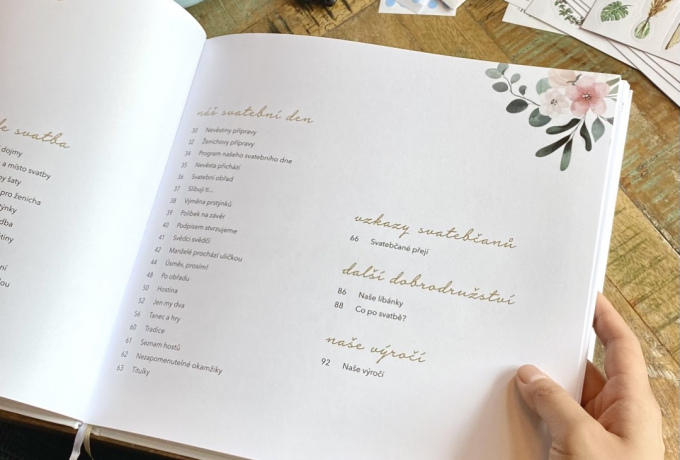 de svatba
dojmy
a místo svatby
šaty
pro ženicha
náš svatební den
30 Nevěstiny přípravy
32 Ženichovy přípravy
34 Program našeho svatebního dne
35 Nevěsta přichází
36 Svatební obřad
37 Slibuji ti...
38 Výměna prstýnků
39 Polibek na závěr
40 Podpisem stvrzujeme
41 Svědci svědčí
42 Manželé prochází uličkou
44 Úsměv, prosím!
48 Po obřadu
50 Hostina
52 Jen my dva
56 Tanec a hry
60 Tradice
61 Seznam hostů
62 Nezapomenutelné okamžiky
63 Titulky
vzkazy svatebčanů
66 Svatebčané přejí
další dobrodružství
86 Naše líbánky
88 Co po svatbě?
naše výročí
92 Naše výročí